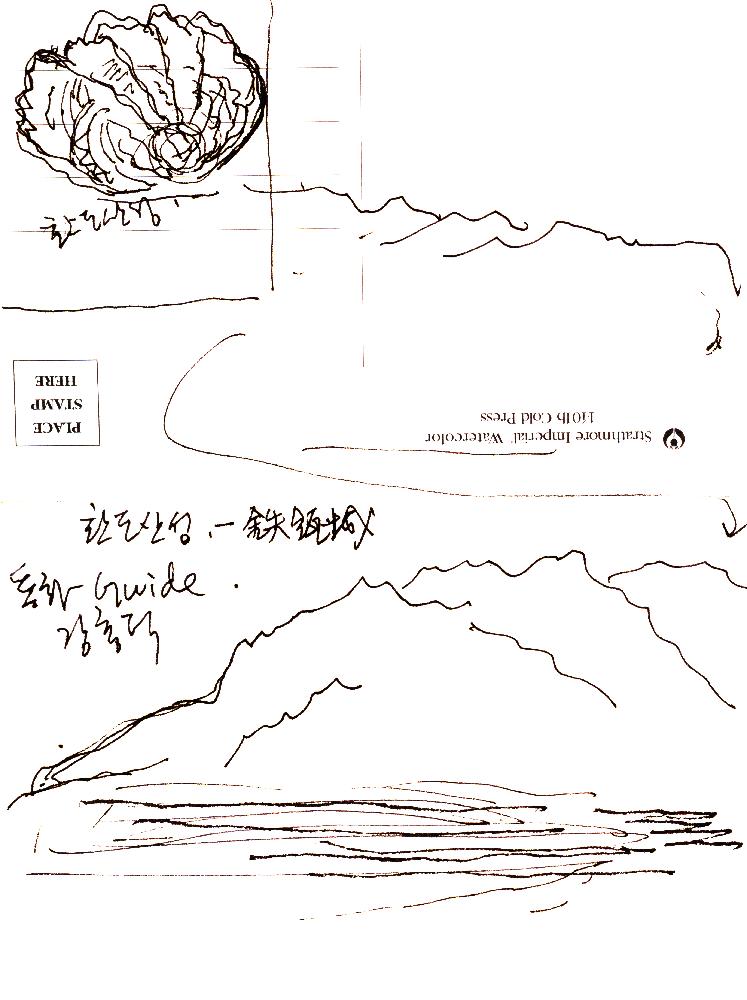 환도산성.
PLACE
STAMP
HERE
Strathmore Imperial Watercolor
140lb Cold Press
환도산성.-鉄 城
통화 Guide.